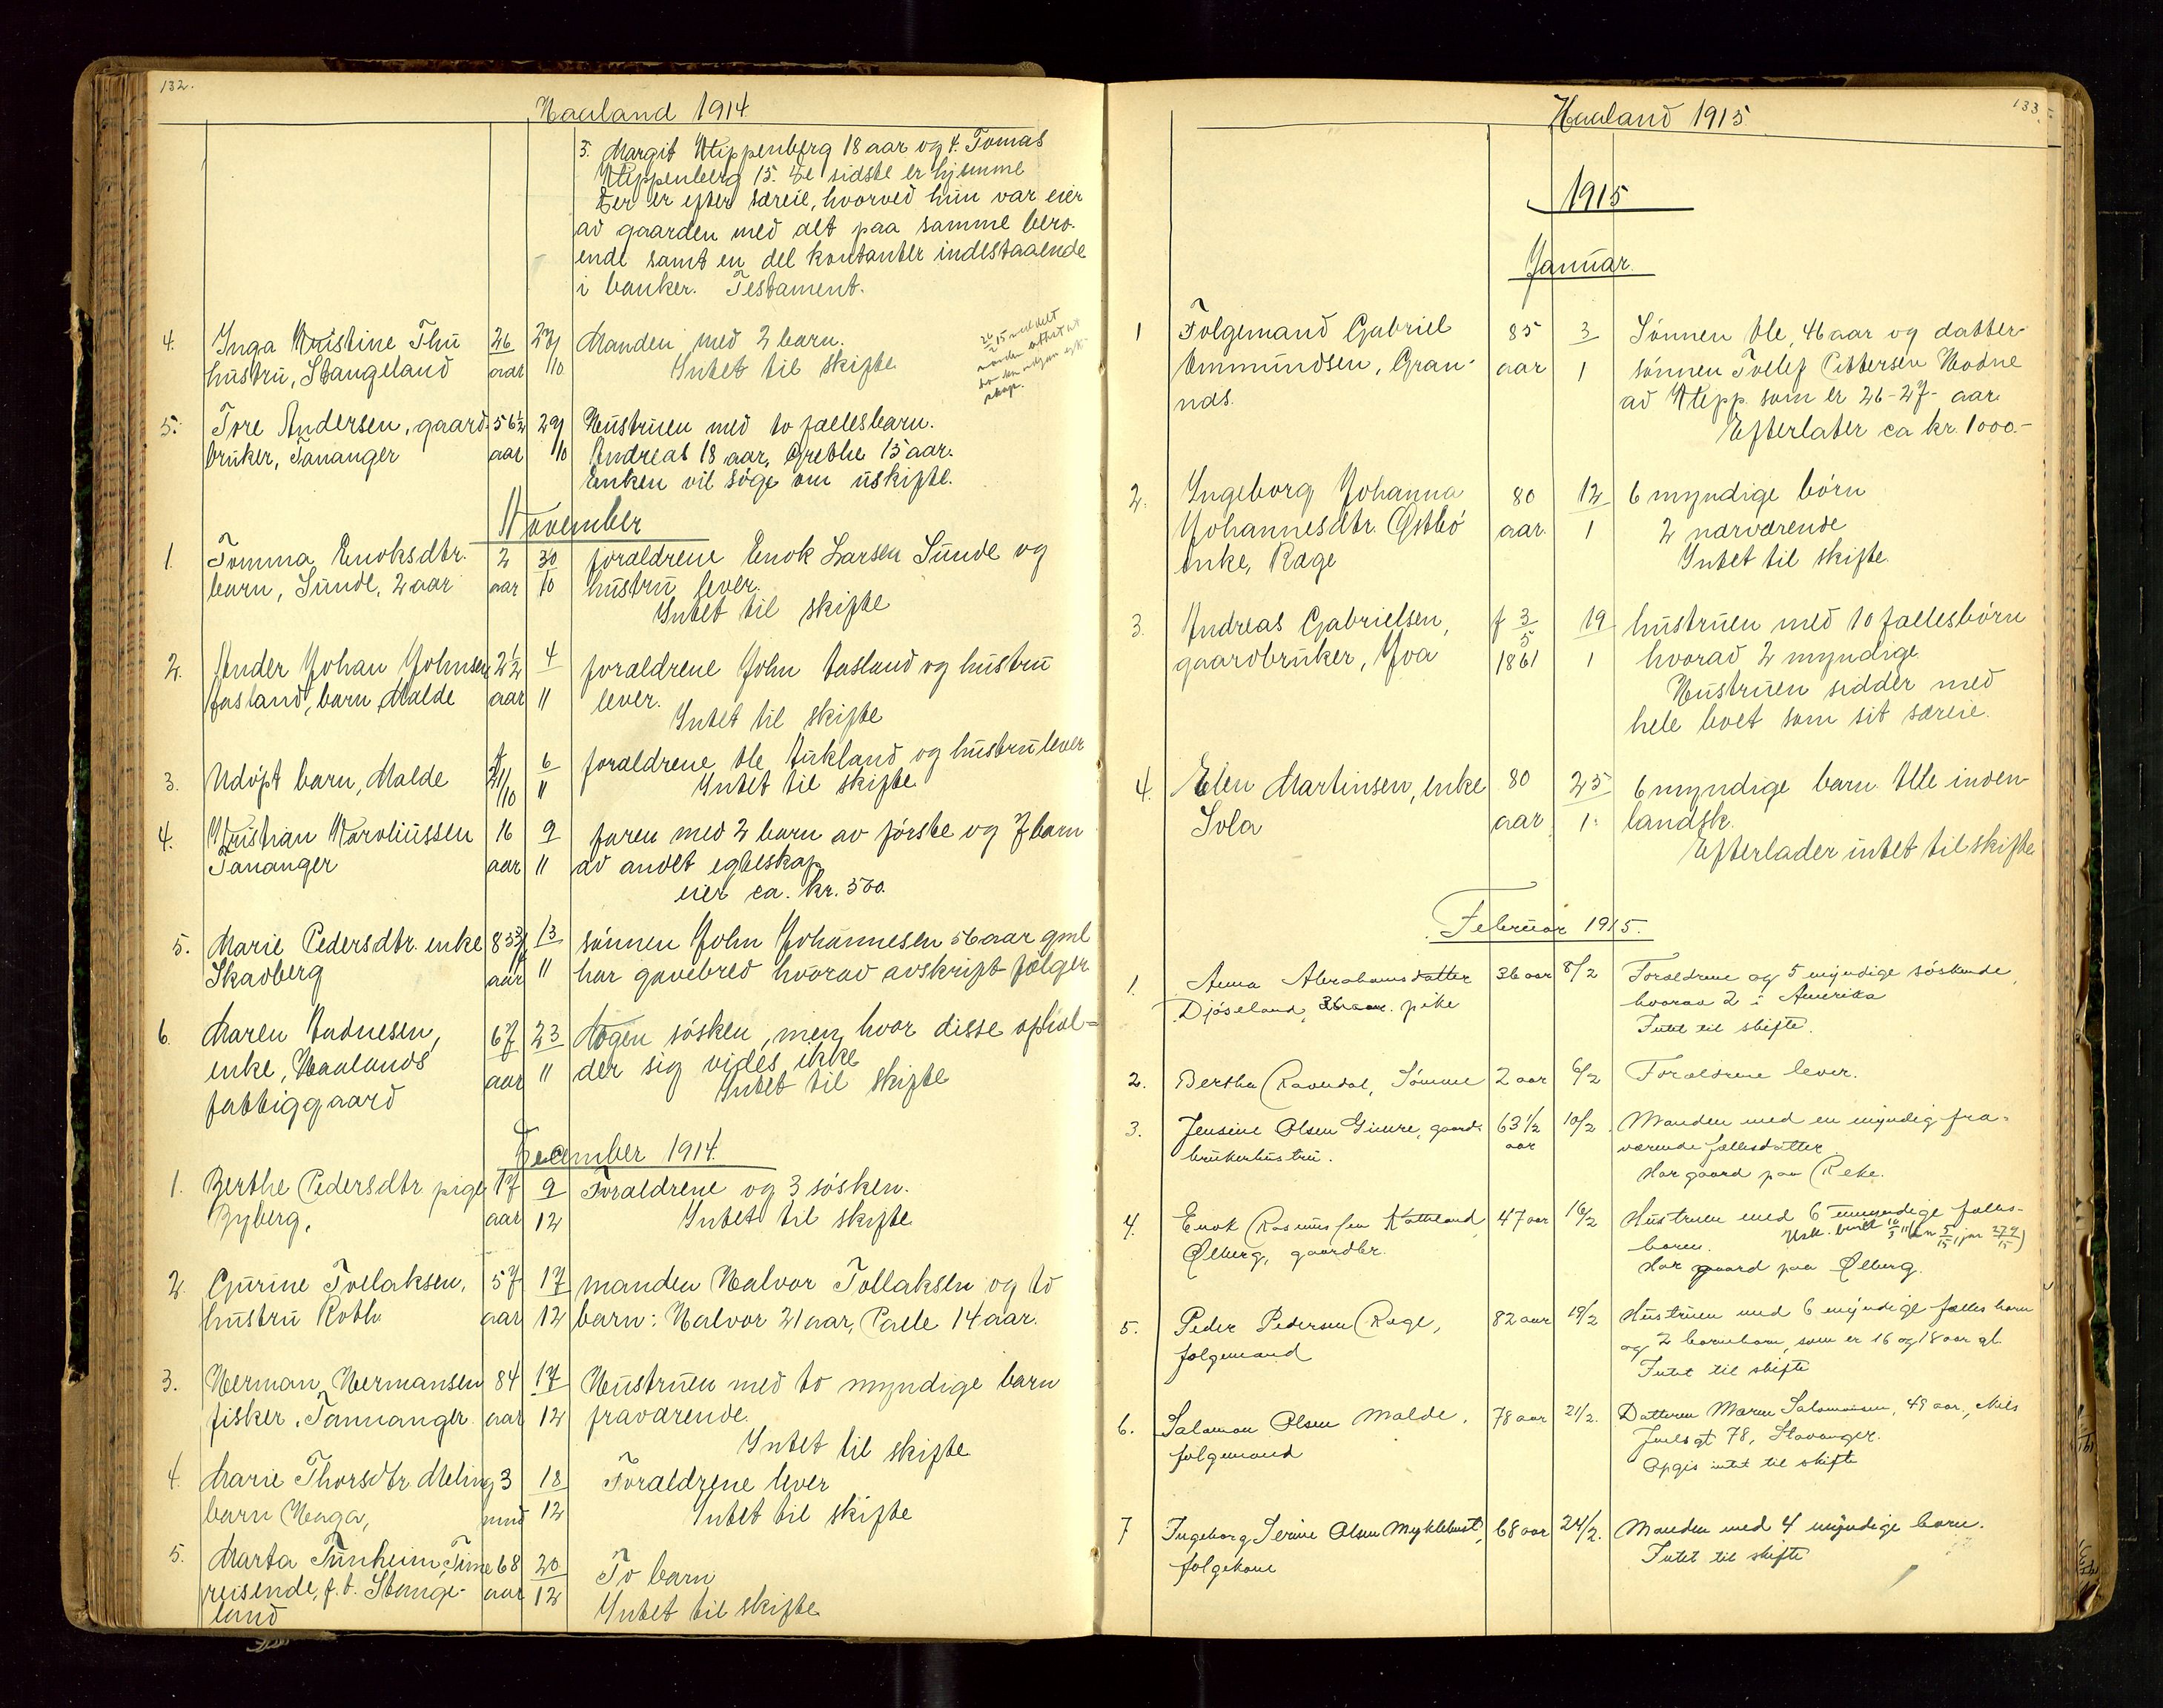 132.
Haaland 1914
3. Margit Klippenberg 18 aar og 4. Tomas
Klippenberg 15. De sidste er hjemme
Der er efter særeie, hvorved hun var eier
av gaarden med alt paa samme bero-
ende samt en del kontanter indestaaende
i banker. Testament.
4. Inga Kristine Thu 26 29 Manden med 2 barn.
hustru, Stangeland aar 10 Intet til skifte
5. Tore Andersen, gaard- 56½ 29 Hustruen med to fællesbarn.
bruker, Tananger aar 10 Andreas 18 aar, Grethe 15 aar.
Enken vil søge om uskifte.
November
1. Tomma Enoksdtr. 2 30 forældrene Enok Larsen Sunde og
barn, Sunde, 2 aar aar 10 hustru lever.
Intet til skifte
2. Ander Johan Johnsen 2½ 4 forældrene John Aasland og hustru
Aasland, barn, Malde aar 11 lever.
Intet til skifte
3. Udøpt barn, Malde 6 forældrene Ole Aukland og hustru lever
10 11 Intet til skifte
4. Kristian Karoliussen 16 9 faren med 2 barn av første og 7 barn
Tananger aar 11 av andet egteskap
eier ca. kr. 500.
5. Marie Pedersdtr. enke 83 13 sønnen John Johannesen 56 aar gml
Skadberg aar 11 har gavebred hvorav avskrift følger
6. Maren Aadnesen, 67 23 Nogen søsken, men hvor disse ophol-
enke, Haalands aar 11 der sig vides ikke
fattiggaard Intet til skifte
December 1914.
1. Berthe Pedersdtr pige 17 9 Forældrene og 3 søsken.
Ryberg, aar 12 Intet til skifte
2. Gurine Tollaksen, 57 17 manden Halvor Tollaksen og to
hustru Roth aar 12 barn: Halvor 21 aar, Palle 14 aar.
3. Herman Hermansen 84 17 Hustruen med to myndige barn
fisker, Tannanger aar 12 fraværende.
Intet til skifte
4. Marie Thorsdtr Meling 3 18 Forældrene lever
barn Haga, mnd 12 Intet til skifte
5. Marta Tunheim, Time 68 20 To barn
reisende, f.t. Stange- aar 12 Intet til skifte
land
133.
Haaland 1915
1915
Januar
1 Folgemand Gabriel 85 3 Sønnen Ole, 46 aar og datter-
Ommundsen, Gran- aar 1 sønnen Tollef Pettersen Hodne
nds. av Klepp som er 26-27- aar.
Efterlater ca kr. 1000.-
2. Ingeborg Johanna 80 12 6 myndige børn
Johannesdtr. Østbø aar. 1 2 nærværende
enke, Rage Intet til skifte.
3. Andreas Gabrielsen, f 3 19 hustruen med 10 fællesbørn
gaardbruker, Joa 5 1861 1 hvorav 2 myndige
Hustruen sidder med
hele boet som sit særeie.
4. Elen Martinsen, enke 80 25 6 myndige barn. Alle inden-
Sola aar 1 landsk.
Efterlader intet til skifte
Februar 1915.
1. Anna Abrahamsdatter 36 aar 8/2 Forældrene og 5 myndige søskende
Djøseland, pike hvorav 2 i Amerika
Intet til skifte.
2. Bertha Ravndal, Sømme 2 aar 6/2 Forældrene lever.
3. Jensine Olsen Gimre, gaard- 63 1/2 10/2 Manden med en myndig fra-
brukerhustru. aar værende fællesdatter
Har gaard paa Reke.
4. Enok Rasmussen 47 aar 16/2 Hustruen med 6 umyndige fælles-
Ølberg, gaardbr. barn.
Har gaard paa Ølberg.
5. Peder Pedersen Rege, 82 aar 19/2 Hustruen med 6 myndige fællesbarn
folgemand og 2 barnebarn, som er 16 og 18 aar gl.
Intet til skifte
6. Salamon Olsen Malde, 78 aar 21/2. Datteren Maren Salamonsen, 49 aar, Nils
folgemand Juelsgt 78, Stavanger.
Opgis intet til skifte
7 Ingeborg Serine Olsen Myklebust, 68 aar 24/2. Manden med 4 myndige barn.
folgekone Intet til skifte